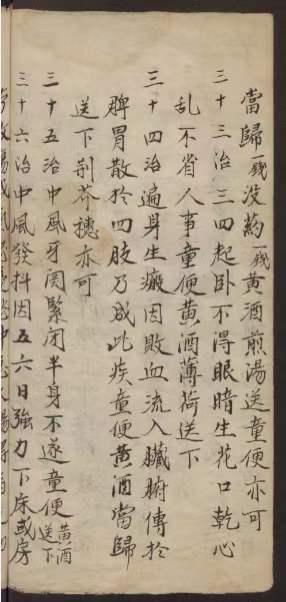 當歸一錢沒藥一錢黃酒煎湯送童便亦可
三十三治三四起卧不得眼暗生花口乾心
乱不省人事童便黃酒薄荷送下
三十四治遍身生瘢因敗血流入臟腑傳於
脾胃散於四肢乃成此疾童便黃酒當歸
送下荊芥穗亦可
三十五治中風牙関緊闭半身不遂童便黃酒送下
三十六治中風發抖因五六日強力下床或房